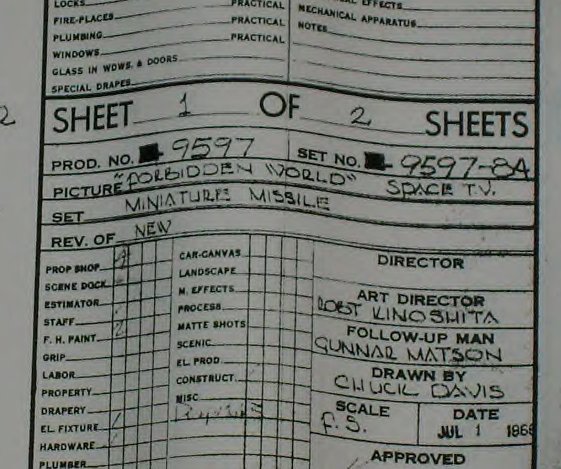 LOCKS PRACTICAL
FIRE-PLACES PRACTICAL
PLUMBING PRACTICAL
WINDOWS
GLASS IN WDWS. & DOORS
SPECIAL DRAPES
EFFECTS
MECHANICAL APPARATUS
NOTES
2
SHEET 1 OF 2 SHEETS
PROD. NO. 9597 SET NO. 9597-84
PICTURE "FORBIDDEN WORLD" SPACE T.V.
SET MINIATURE MISSILE
REV. OF NEW
PROP SHOP
SCENE DOCK
ESTIMATOR
STAFF
F. H. PAINT 2
GRIP
LABOR
PROPERTY
DRAPERY
EL. FIXTURE
HARDWARE
PLUMBER
CAR-CANVAS
LANDSCAPE
M. EFFECTS
PROCESS
MATTE SHOTS
SCENIC
EL. PROD.
CONSTRUCT.
MISC
DIRECTOR
ART DIRECTOR
ROBT KINOSHITA
FOLLOW-UP MAN
GUNNAR MATSON
DRAWN BY
CHUCK DAVIS
SCALE DATE
F.S. JUL 1
APPROVED